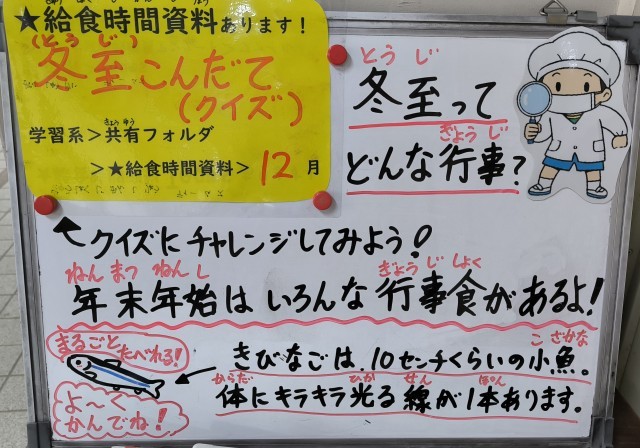 ★給食時間資料あります！
(とうじ)
冬至こんだて
(クイズ)
きょうゆう
学習系＞共有フォルダ
＞★給食時間資料＞12月
とうじ
冬至って
ぎょうじ
どんな行事?
クイズにチャレンジしてみよう!
ねんまつねんし ぎょうじしょく
年末年始はいろんな行事食があるよ!
まるごと
たべれる!
よ〜く
かんでね!
こざかな
きびなごは、10センチくらいの小魚。
からだ ひか せん ぽん
体にキラキラ光る線が1本あります。